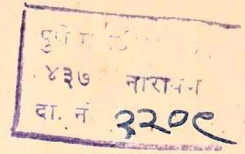 पुणे
४३७ नारायण
दा. नं ३२०९